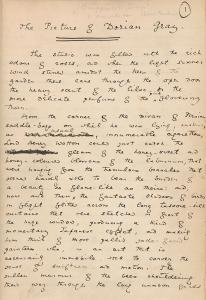 1
The Picture of Dorian Gray
The studio was filled with the rich
odour of roses, and when the light summer
wind stirred amidst the trees of the
garden there came through the open door
the heavy scent of the lilac, or the
more delicate perfume of the flowering
thorn.
From the corner of the divan of Persian
saddle-bags on which he was lying, smoking,
as usual, innumerable cigarettes,
Lord Henry Wotton could just catch the
gleam of the honey-sweet and
honey-coloured blossoms of the laburnum, that
were hanging from the tremulous branches that
seemed hardly able to bear the burden of
a beauty so flame-like as theirs: and,
now and then, the fantastic shadows of birds
in flight flitted across the long tussore-silk
curtains that were stretched in front of
the huge window, producing a kind of
momentary Japanese effect, and making
him think of
painters who, in an art that is
necessarily immobile, seek to convey the
sense of and motion. The
sullen murmur of the bees shouldering
their way through the long unmown grass